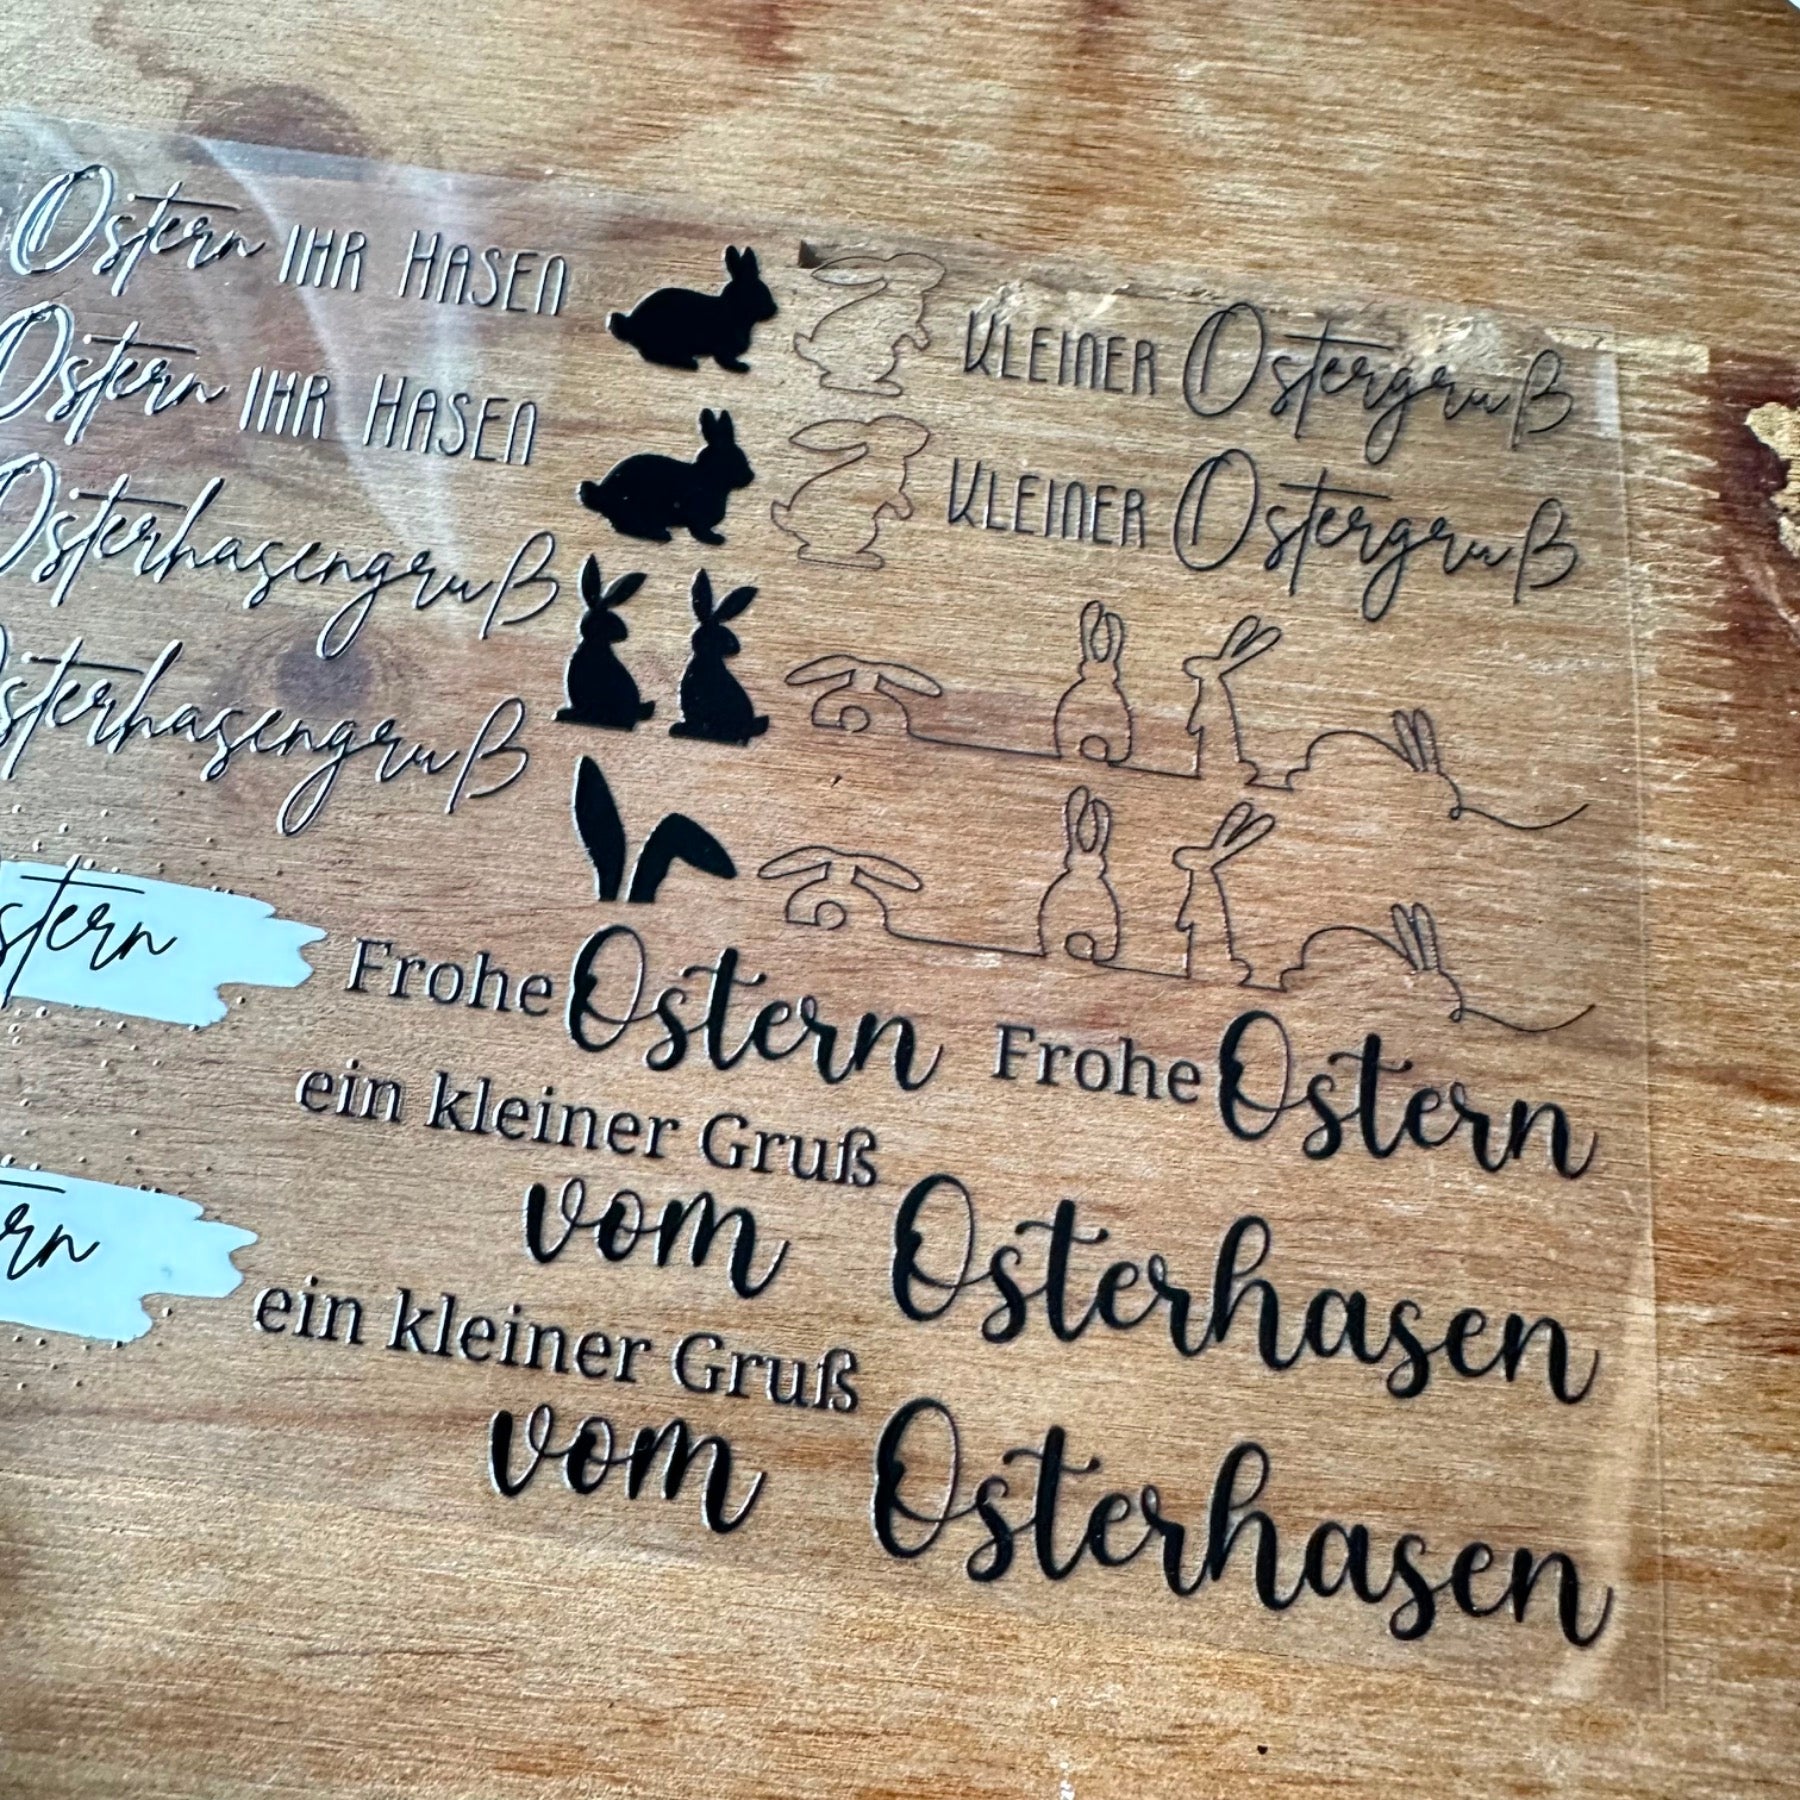 Ostern IHR HASEN
KLEINER Ostergruß
Ostern IHR HASEN
KLEINER Ostergruß
Osterhasengruß
Osterhasengruß
Frohe Ostern
Frohe Ostern
ein kleiner Gruß
vom Osterhasen
ein kleiner Gruß
vom Osterhasen